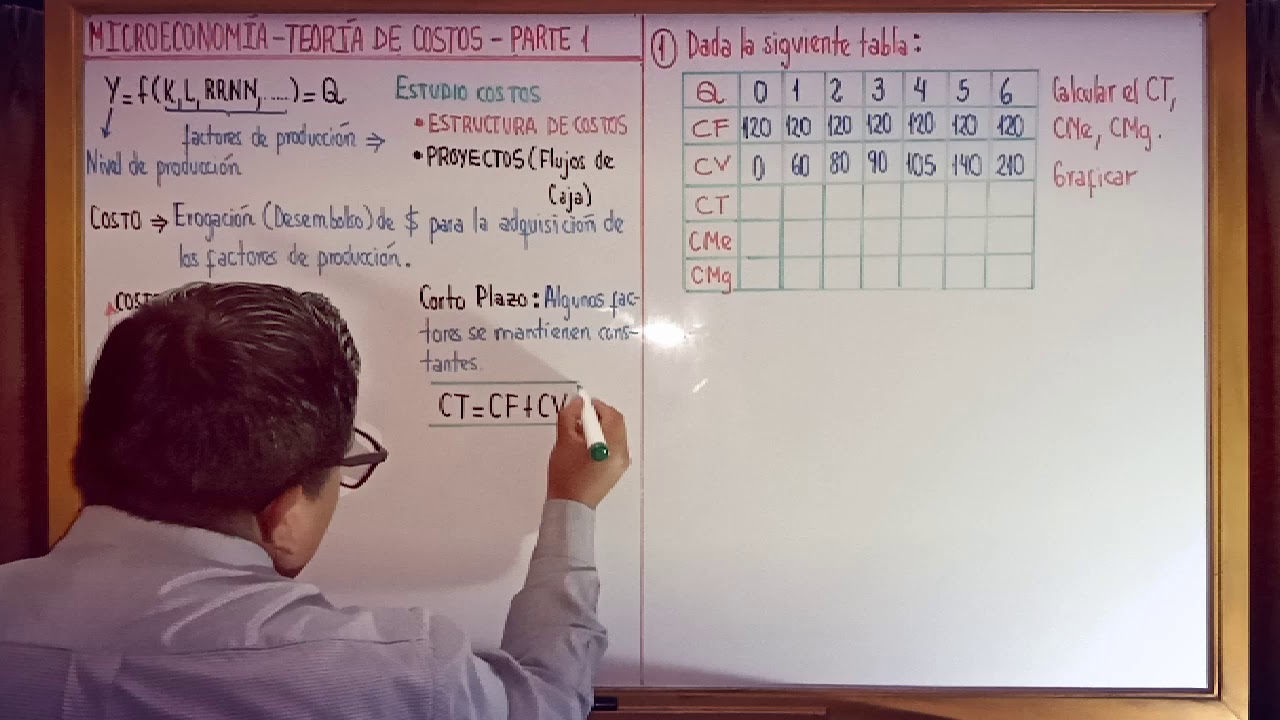 MICROECONOMÍA-TEORÍA DE COSTOS - PARTE 1
Y=f(K,L,RRNN,.....)=Q
factores de producción ⇒
Nivel de producción
ESTUDIO COSTOS
• ESTRUCTURA DE COSTOS
• PROYECTOS (Flujos de
Caja)
COSTO ⇒ Erogación (Desembolso) de $ para la adquisición de
los factores de producción.
Corto Plazo: Algunos fac-
tores se mantienen cons-
tantes.
CT=CF+CV
① Dada la siguiente tabla:
Q 0 1 2 3 4 5 6
CF 120 120 120 120 120 120 120
CV 0 60 80 90 105 140 210
CT
CMe
CMg
Calcular el CT,
CMe, CMg.
Graficar